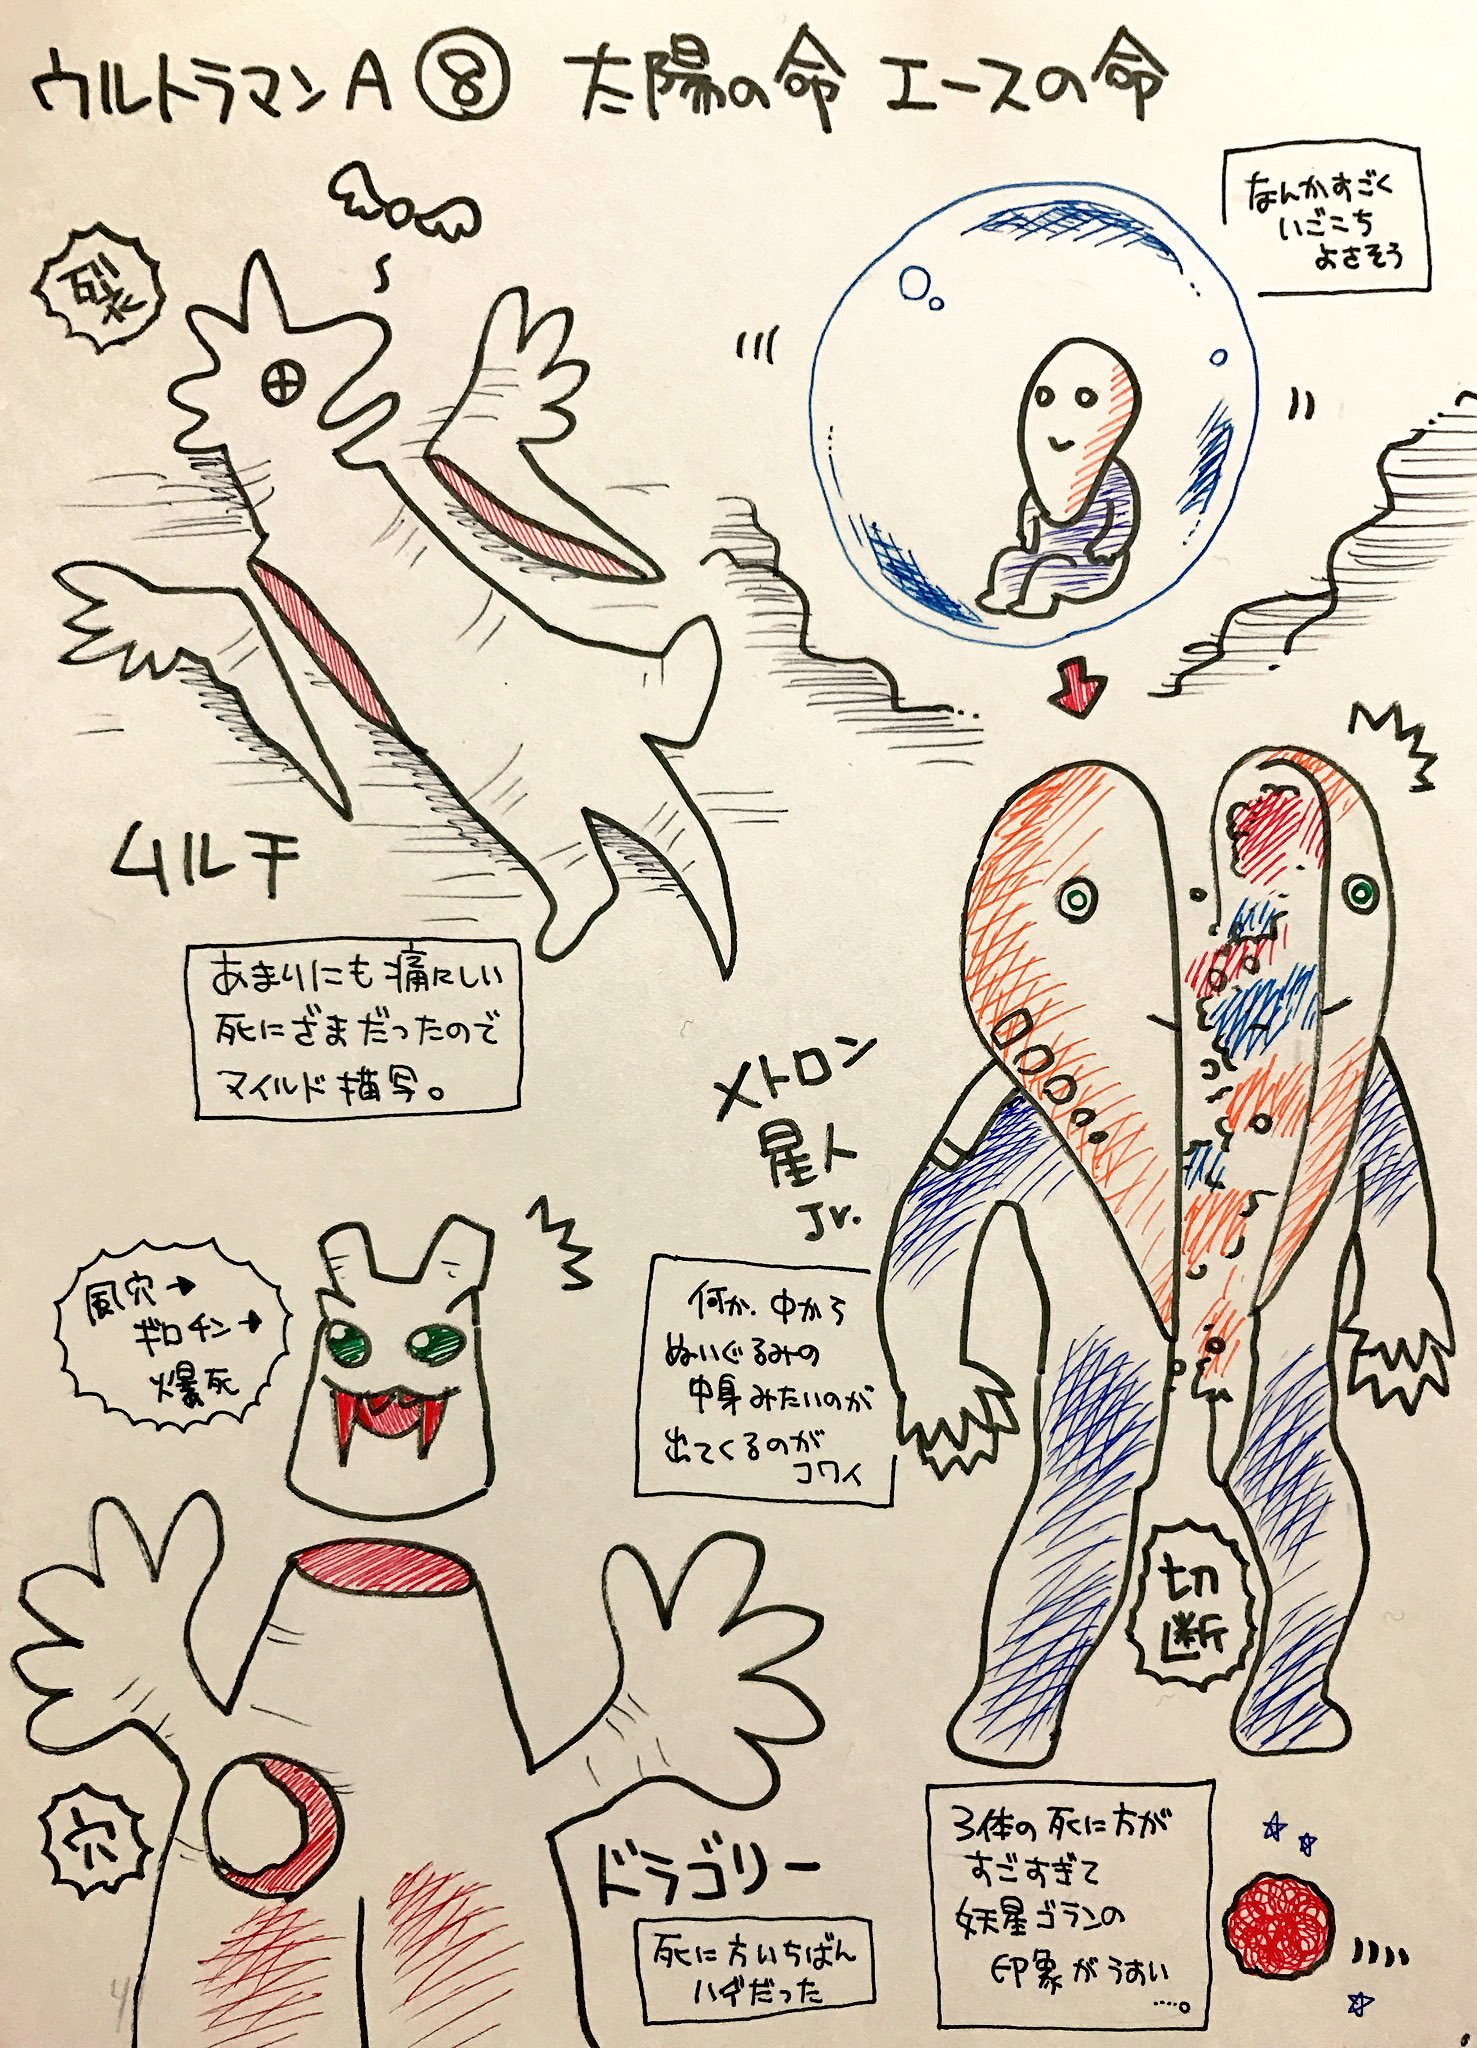 ウルトラマンA⑧ 太陽の命 エースの命
なんかすごく
いごこち
よさそう
裂き
ムルチ
あまりにも痛々しい
死にざまだったので
マイルド描写。
メトロン
星人
Jr.
何か、中から
ぬいぐるみの
中身みたいのが
出てくるのが
コワイ
風穴→
ギロチン→
爆死
切
断
穴
ドラゴリー
死に方いちばん
ハデだった
3体の死に方が
すごすぎて
妖星ゴランの
印象がうすい
……。